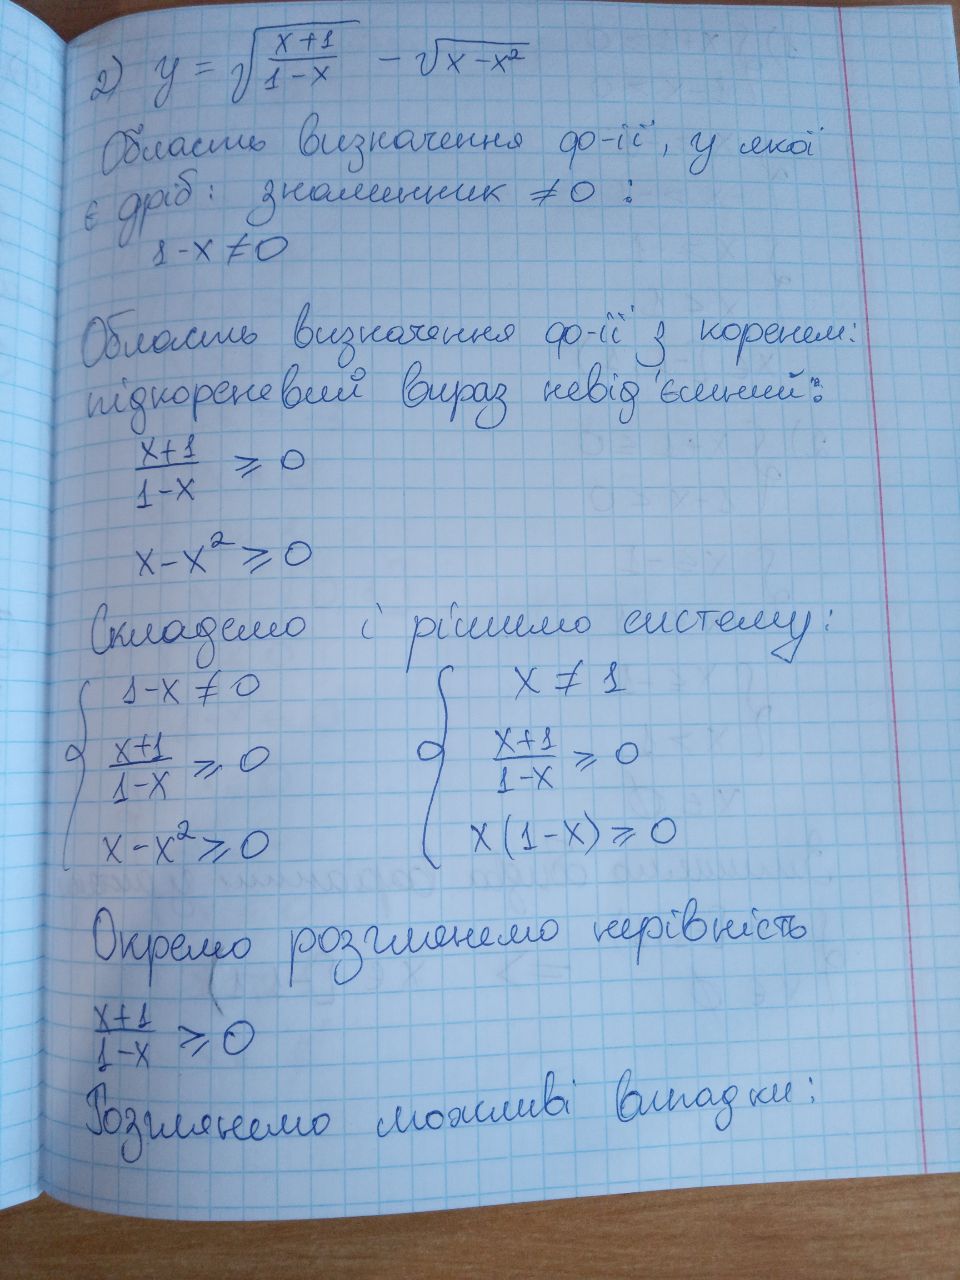 2) y = √((x+1)/(1-x)) - √(x-x²)
Область визначення ф-ії, у якої
є дріб: знаменник ≠ 0 :
1-x ≠ 0
Область визначення ф-ії з коренем:
підкореневий вираз невід'ємний:
(x+1)/(1-x) ≥ 0
x-x² ≥ 0
Складемо і рішимо систему:
{ 1-x ≠ 0 { x ≠ 1
(x+1)/(1-x) ≥ 0 (x+1)/(1-x) ≥ 0
x-x² ≥ 0 x(1-x) ≥ 0
Окремо розглянемо нерівність
(x+1)/(1-x) ≥ 0
Розглянемо можливі випадки: